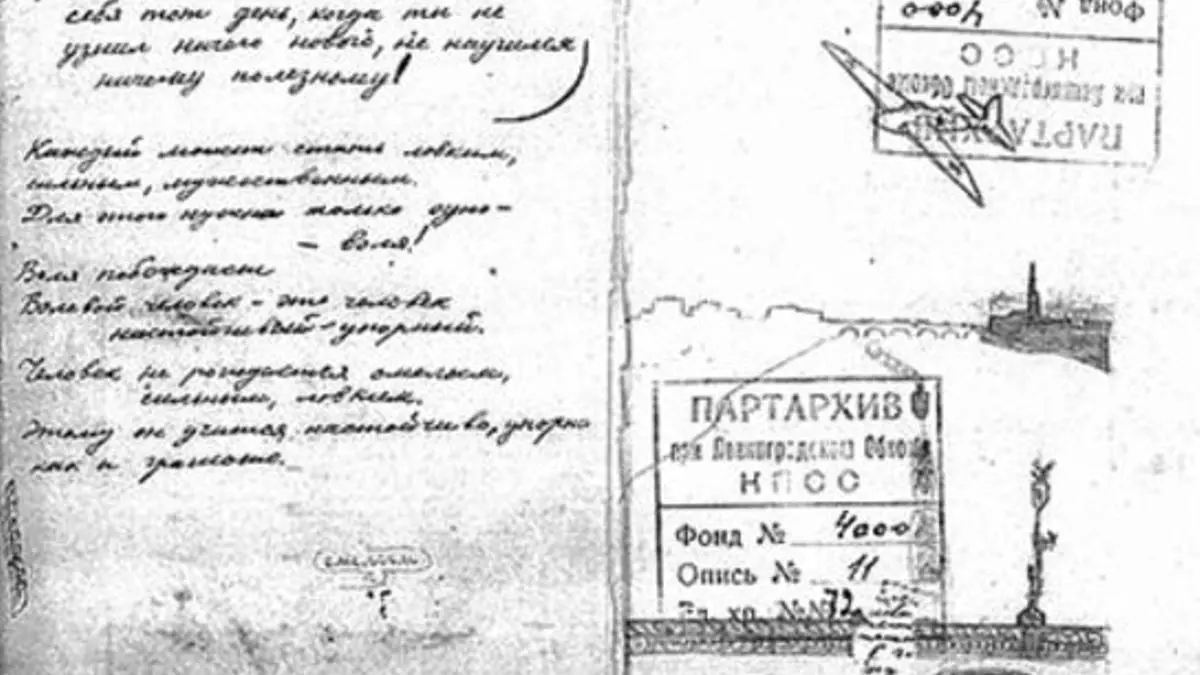 себя тот день, когда ты не
узнил ничего нового, не научился
ничему полезному!
Каждый может стать ловким,
сильным, мужественным.
Для этого нужна только одно-
- воля!
Воля побеждает
Волевой человек - это человек
настойчивый - упорный.
Человек не рождается смелым,
сильным, ловким.
Этому он учится настойчиво, упорно
как и грамоте.
смелым
ПАРТАРХИВ
при Ленинградском Обкоме
КПСС
Фонд № 4000
ПАРТАРХИВ
при Ленинградском Обкоме
КПСС
Фонд № 4000
Опись № 11
Ед. хр. №№ 72